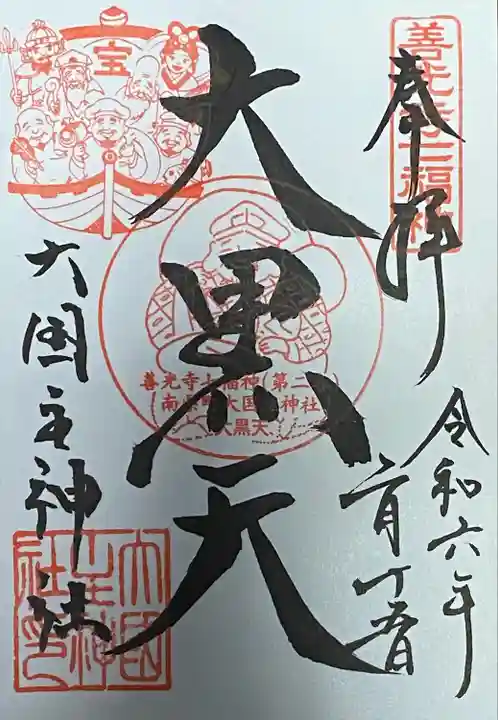 奉拝
善光寺七福神
令和六年
月十五日
大黒天
善光寺七福神(第二
南県町 大国主神社
大黒天
宝
大国主神社
大国主神社印